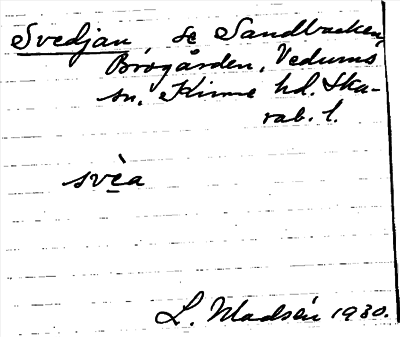 Svedjan, se Sandbacken,
Brogården, Vedums
sn. Kinne hd. Ska-
rab. l.
svèa
L. Madsén 1930.